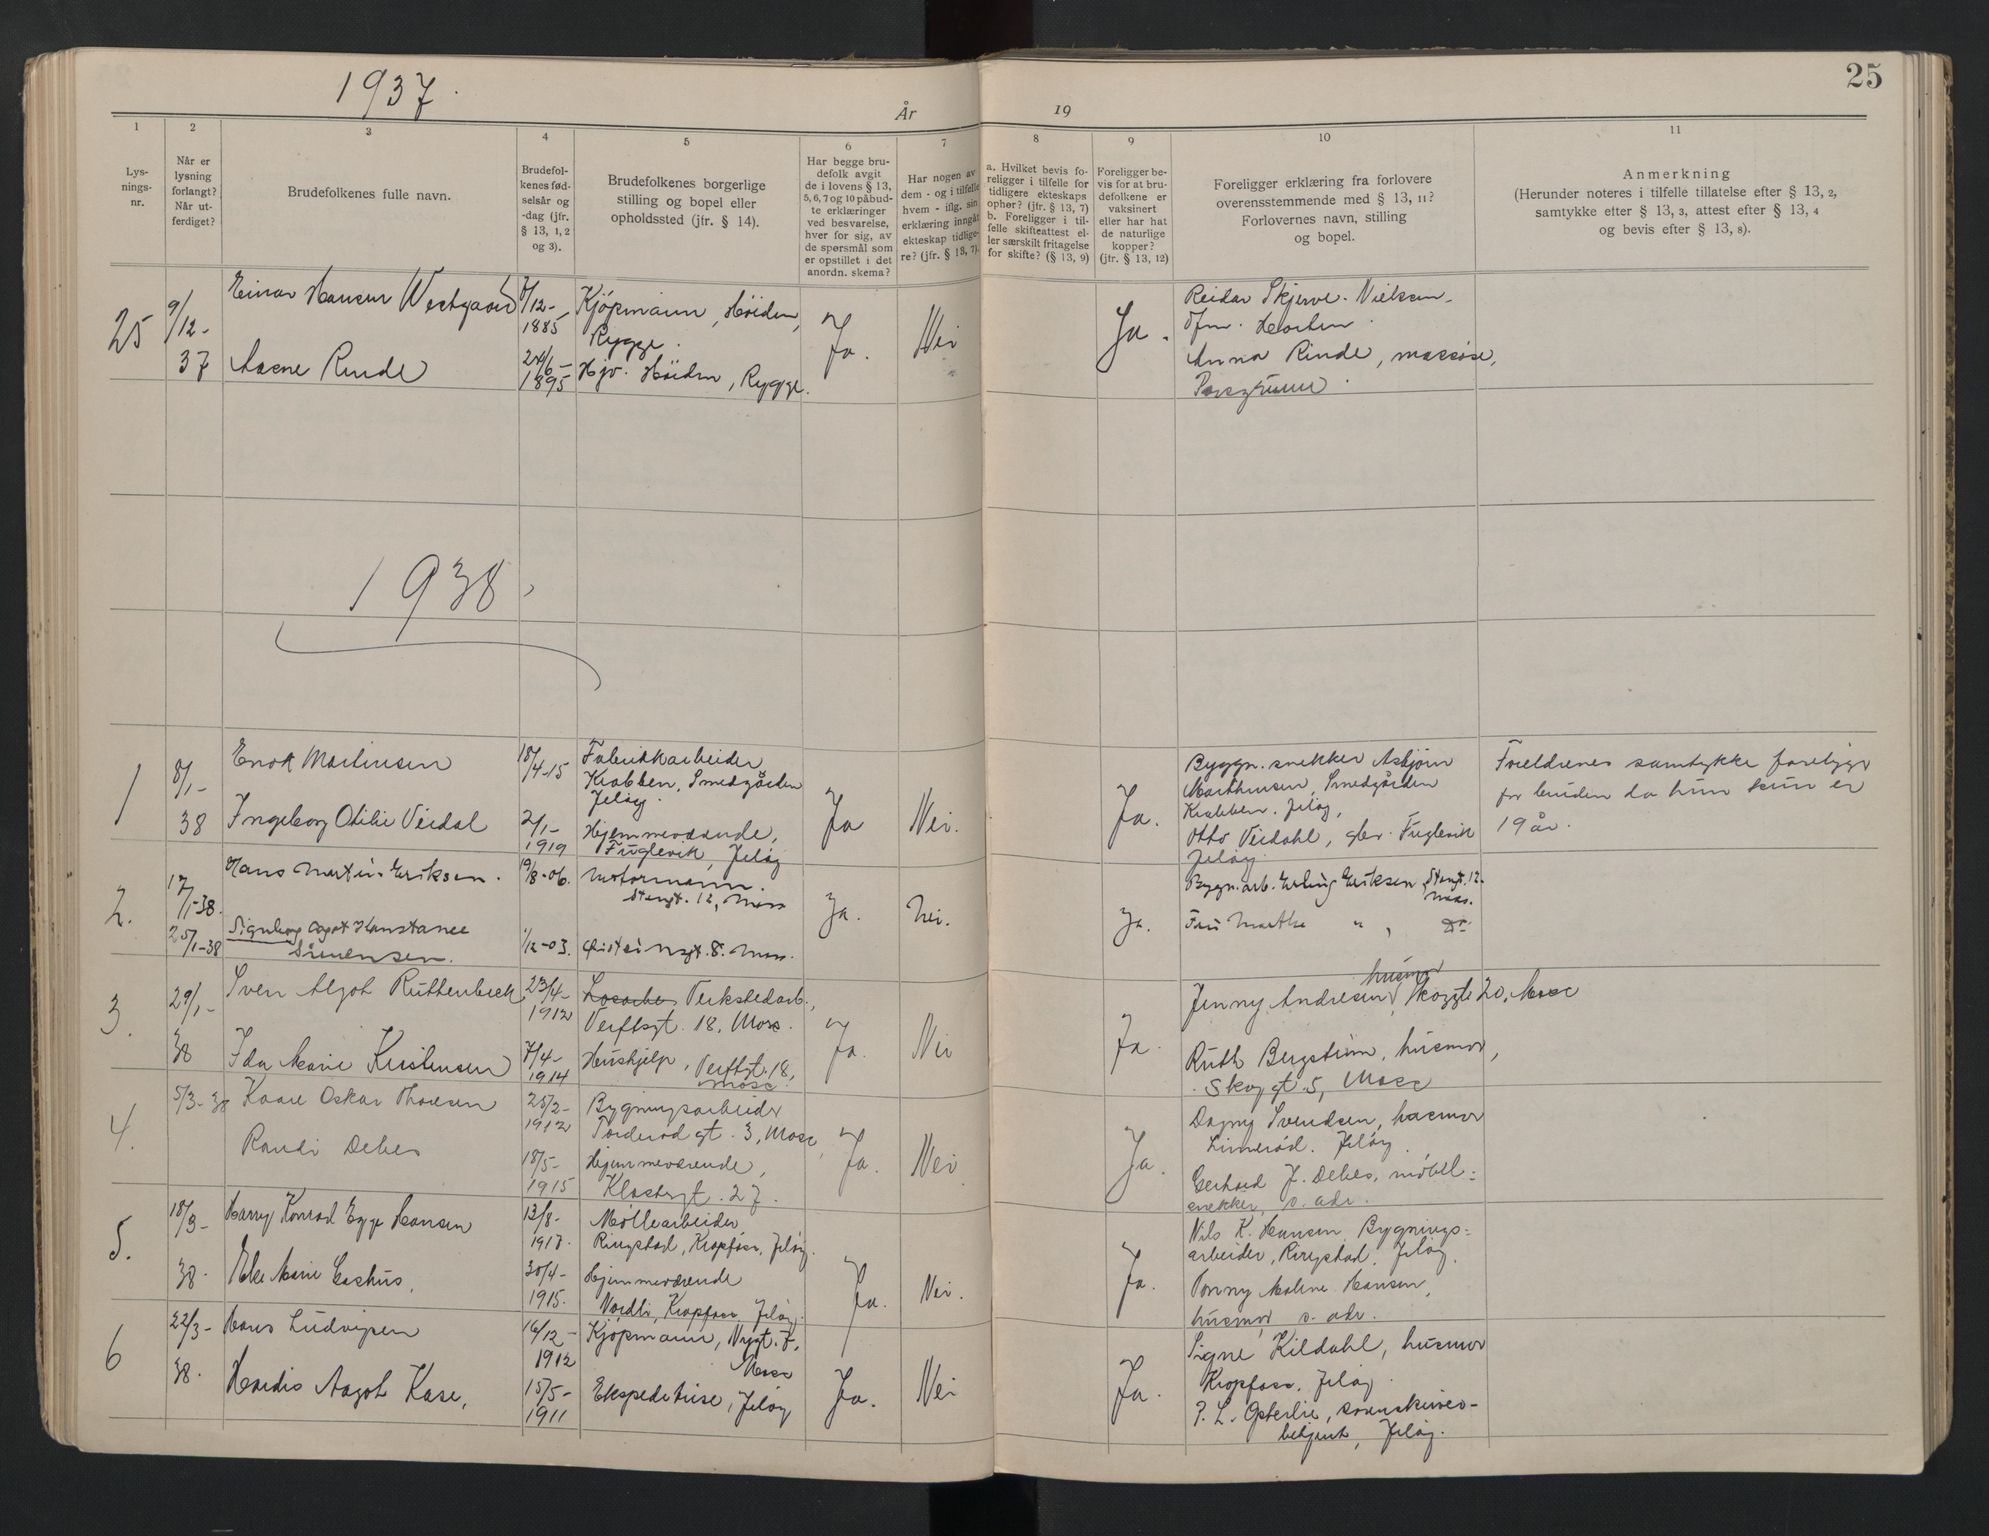 1937.
25
År
19
1
2
3
4
5
6
7
8
9
10
11
Lys-
nings-
nr.
Når er
lysning
forlangt?
Når ut-
ferdiget?
Brudefolkenes fulle navn.
Brudefol-
kenes fød-
selsår og
-dag (jfr.
§ 13, 1, 2
og 3).
Brudefolkenes borgerlige
stilling og bopel eller
opholdssted (jfr. § 14).
Har begge bru-
defolk avgit
de i lovens § 13,
5, 6, 7 og 10 påbud-
te erklæringer
ved besvarelse,
hver for sig, av
de spørsmål som
er opstillet i det
anordn. skema?
Har nogen av
dem - og i tilfelle
hvem - iflg. sin
erklæring inngått
ekteskap tidlige-
re? (jfr. § 13, 7).
a. Hvilket bevis fo-
religger i tilfelle for
tidligere ekteskaps
ophør? (jfr. § 13, 7)
b. Foreligger i til-
felle skifteattest el-
ler særskilt fritagelse
for skifte? (§ 13, 9)
Foreligger be-
vis for at bru-
defolkene er
vaksinert
eller har hat
de naturlige
kopper?
(jfr. § 13, 12)
Foreligger erklæring fra forlovere
overensstemmende med § 13, 11?
Forlovernes navn, stilling
og bopel.
Anmerkning
(Herunder noteres i tilfelle tillatelse efter § 13, 2,
samtykke efter § 13, 3, attest efter § 13, 4
og bevis efter § 13, 8).
25
9/12-
37
Einar Hansen Westgaard
Aasne Rinde
7/12-
1885
24/6-
1895
Kjøpmann, Høiden,
Rygge.
Hjv. Høiden, Rygge.
Ja.
Nei
Ja.
Reidar Skjerve-Nielsen
Horten.
Anna Rinde, massøse,
Porsgrunn.
1938.
1
8/1-
38
Enok Martinsen
Ingeborg Otilie Veidal
18/4-15
2/1-
1919
Fabrikkarbeider
Krabben, Smedgården
Jeløy.
Hjemmeværende,
Fuglevik, Jeløy
Ja
Nei.
Ja.
Byggn. snekker Asbjørn
Marthinsen, Smedgården
Krabben, Jeløy,
Otto Veidahl, Fuglevik
Jeløy.
Foreldrenes samtykke foreligger
for bruden da hun kun er
19 år.
2.
17/1-38.
25/1-38
Hans Martin Eriksen.
Signborg Agot Konstance
Simensen.
19/8-06.
1/12-03.
Motormann.
Stengt. 12, Moss
8. Moss.
Ja.
Nei.
Ja.
Bygn. arb. Erling Eriksen, Stengt. 12.
Moss.
Fru Marthe " , do
3.
29/1-
38
Sven Algot Ruthenbeck
Ida Marie Kristensen
23/4-
1912
7/4-
1914
Verkstedarb.,
Verftsgt. 18, Moss.
Hushjelp, Verftsgt. 18,
Moss.
Ja.
Nei
Ja.
husmor
Jenny Andresen, Skoggt. 20, Moss
Ruth Bergstrøm, husmor,
Skoggt. 5, Moss
4.
5/3-38
Kaare Oskar Thoresen
Randi Debes
25/2-
1912
18/5-
1915
Bygningsarbeider
Torderød gt. 3, Moss,
Hjemmeværende,
Klostergt. 27.
Ja.
Nei
Ja.
Dagny Svendsen, husmor
Limerød. Jeløy.
Gerhard J. Debes, møbel-
snekker, s. adr.
5.
18/3-
38.
Harry Konrad Egge Hansen
Else Marie
13/8-
30/4-
1915.
Møllearbeider
Ringstad, Kropfoss, Jeløy.
Hjemmeværende
Nordli, Kropfoss, Jeløy.
Ja.
Nei.
Ja.
Nils K. Hansen, Bygnings-
arbeider, Ringstad, Jeløy.
Malene Hansen,
husmor s. adr.
6
22/3-
38.
Hans Ludvigsen
Hordis Aagot Kase,
16/12-
1912
15/5-
1911
Kjøpmann, Nygt. 7,
Moss
Ekspeditrise, Jeløy
Ja.
Nei
Ja.
Signe Kildahl, husmor
Kropfoss, Jeløy.
P. L. Østerlie, sorenskriver-
betjent, Jeløy.